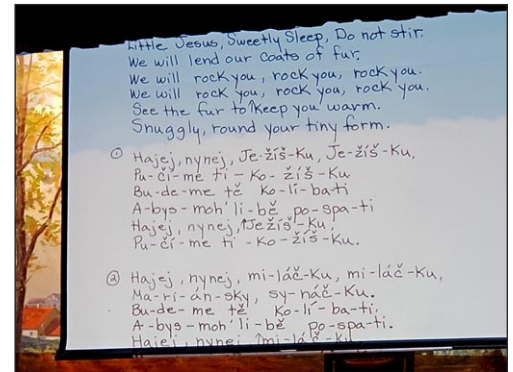 Little Jesus, Sweetly Sleep, Do not stir.
We will lend our coats of fur.
We will rock you, rock you, rock you.
We will rock you, rock you, rock you.
See the fur to↑keep you warm.
Snuggly, round your tiny form.
① Hajej, nynej, Je-žíš-Ku, Je-žíš-Ku,
Pu-čí-me ti - Ko-žíš-Ku
Bu-de-me tě Ko-lí-bati
A-bys-moh' li-bě po-spa-ti
Hajej, nynej,↑Ježíš-Ku,
Pu-čí-me ti -Ko-žíš-Ku.
② Hajej, nynej, mi-láč-Ku, mi-láč-Ku,
Ma-ri-án-sky, sy-náč-Ku.
Bu-de-me tě Ko-lí-ba-ti,
A-bys-moh' li-bě po-spa-ti.
Hajej, nynej ↑mi-láč-Ku